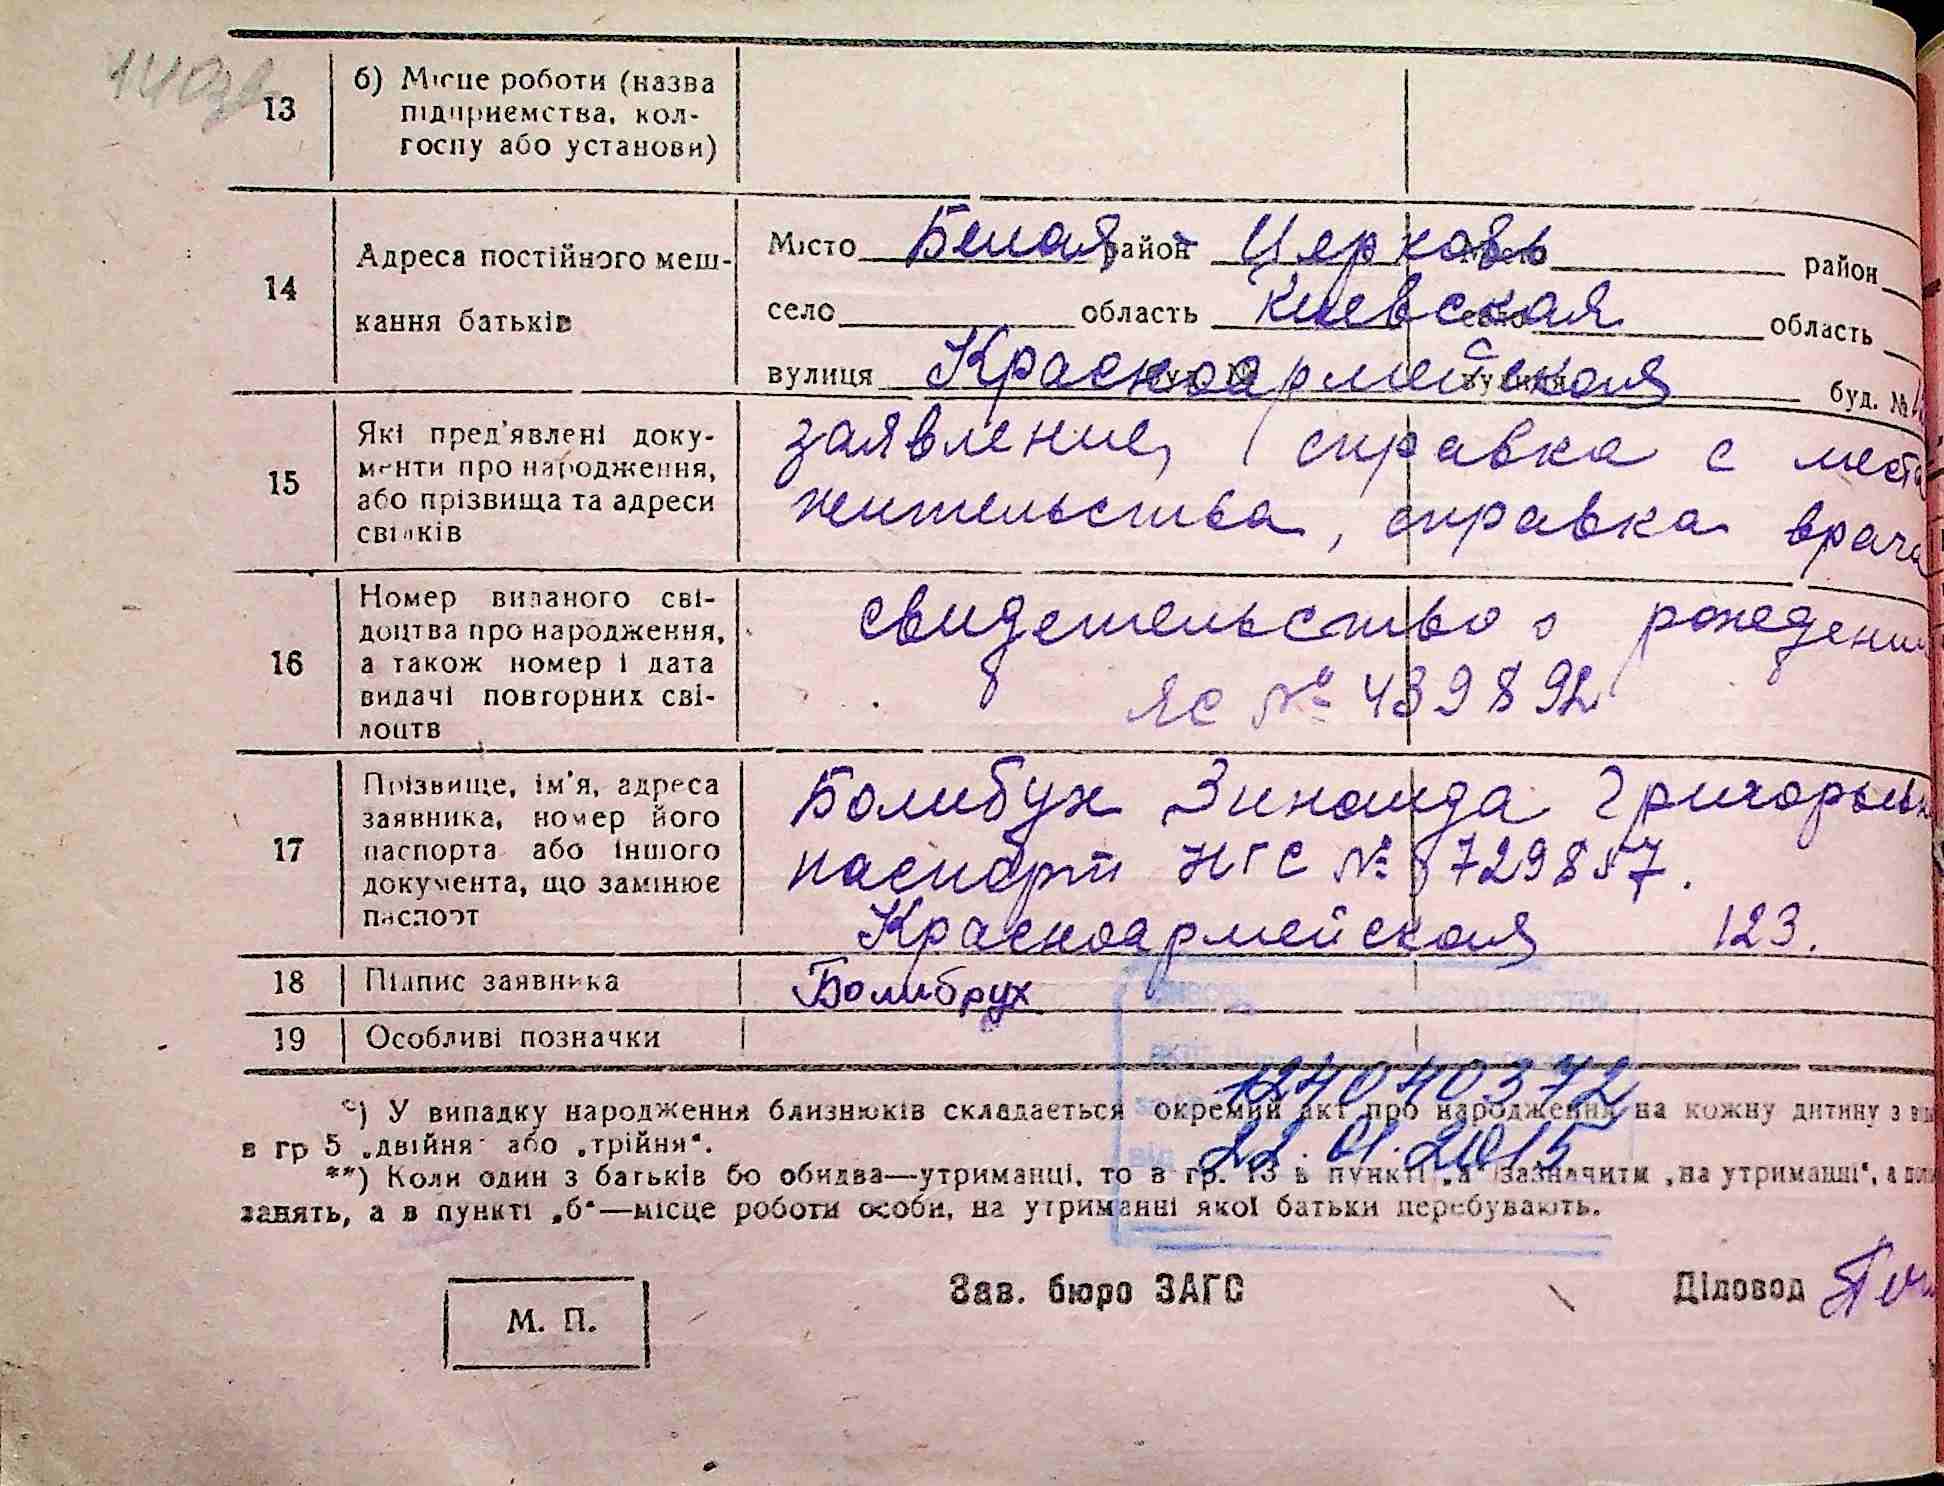 140зв
13
б) Місце роботи (назва
підприємства, кол-
госпу або установи)
14
Адреса постійного меш-
кання батьків
Місто Белая район Церковь Місто район
село область Киевская село область
вулиця Красноармейская буд. № вулиця буд. №
15
Які пред'явлені доку-
менти про народження,
або прізвища та адреси
свідків
заявление, справка с места
жительства, справка врача
16
Номер виданого сві-
доцтва про народження,
а також номер і дата
видачі повторних сві-
доцтв
свидетельство о рождении
ЯС № 439892
17
Прізвище, ім'я, адреса
заявника, номер його
паспорта або іншого
документа, що замінює
паспорт
Болибух Зинаида Григорьевн
паспорт НГС № 729857.
Красноармейская 123.
18
Підпис заявника
Болибрух
19
Особливі позначки
124040372
від 22.01.2015
*) У випадку народження близнюків складається окремий акт про народження на кожну дитину з
в гр 5 „двійня" або „трійня".
**) Коли один з батьків бо обидва—утриманці, то в гр. 13 в пункті „а" зазначити „на утриманні", а
занять, а в пункті „б"—місце роботи особи, на утриманні якої батьки перебувають.
М. П.
Зав. бюро ЗАГС
Діловод